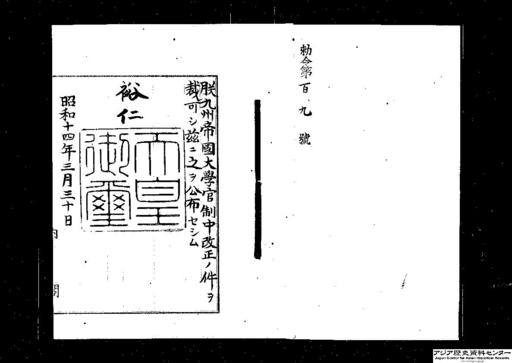 勅令第百九號
朕九州帝國大學官制中改正ノ件ヲ
裁可シ茲ニ之ヲ公布セシム
裕仁
天皇
御璽
昭和十四年三月三十日
内閣
アジア歴史資料センター
Japan Center for Asian Historical Records